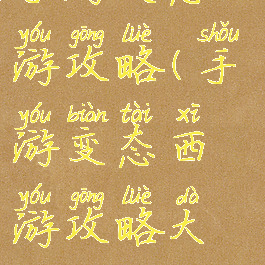 yóu gōng lüè shǒu
游攻略(手
yóu biàn tài xī
游变态西
yóu gōng lüè dà
游攻略大